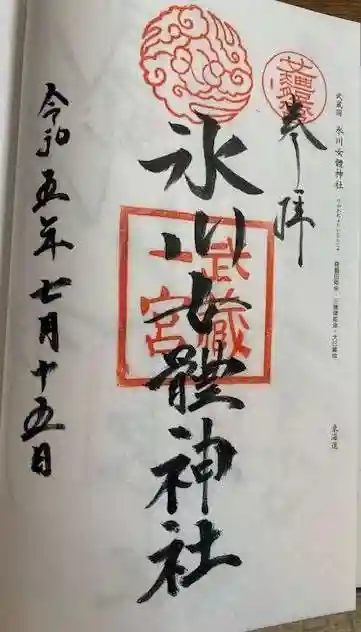 武蔵国 氷川女體神社
東海道
奉拝
武蔵
一宮
氷川女體神社
令和五年七月十五日